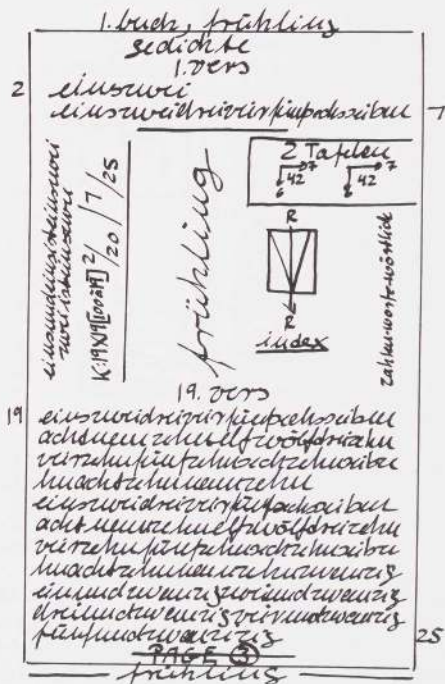 1. buch, frühling
gedichte
1. vers
2 einszwei
einszweidreivierfünfsechssieben 7
einsundeinsisteinszwei
zwei isteinszwei
K:19X19[100à19] 2/20/7/25
frühling
2 Tafelen
7 7
42 42
6 6
R
R
index
zahlen-worte-wörtlich
19. vers
19 einszweidreivierfünfsechssieben
achtneunzehnelfzwölfdreizehn
vierzehnfünfzehnsechzehnsiebe
hnachtzehnneunzehn
einszweidreivierfünfsechssieben
achtneunzehnelfzwölfdreizehn
vierzehnfünfzehnsechzehnsiebe
hnachtzehnneunzehnzwanzig
einundzwanzigzweiundzwanzig
dreiundzwanzigvierundzwanzig
fünfundzwanzig 25
PAGE 3
frühling